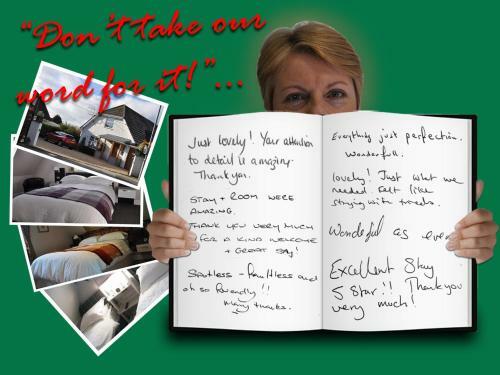 "Don't take our
word for it!"...
Just lovely! Your attention
to detail is amazing.
Thank you.
STAY + ROOM WERE
AMAZING.
THANK YOU VERY MUCH
FOR A KIND WELCOME
+ GREAT STAY!
Spotless - faultless and
oh so friendly!!
Many thanks.
Everything just perfection.
Wonderfull.
lovely! Just what we
needed. Felt like
staying with friends.
Wonderful as ever
Excellent Stay
5 Star!! Thank you
very much!